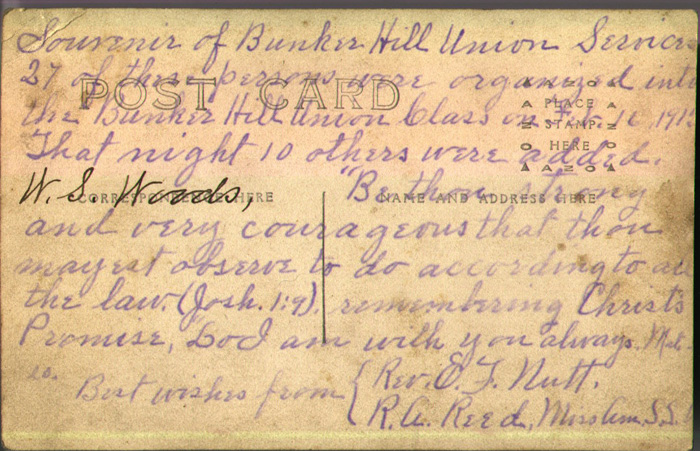 Souvenir of Bunker Hill Union Services
27 of these persons were organized into
POST CARD
the Bunker Hill Union Class on Feb. 16, 191
PLACE
STAMP
HERE
That night 10 others were added.
W. S. Woods, "Be thou strong
CORRESPONDENCE HERE
NAME AND ADDRESS HERE
and very courageous that thou
mayest observe to do according to al
the law. (Josh. 1:9). remembering Christs
Promise, Lo I am with you always. Mat-
Best wishes from { Rev. E. F. Nutt.
R. A. Reed, S.S.